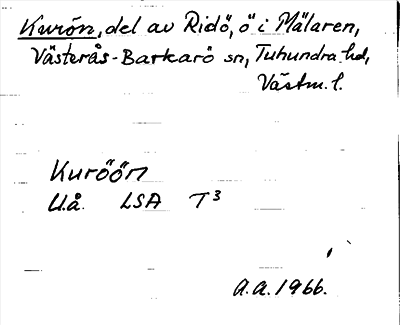 Kurön, del av Ridö, ö i Mälaren,
Västerås-Barkarö sn, Tuhundra hd,
Västm. l.
Kuröön
U.å. LSA T3
A.A. 1966.